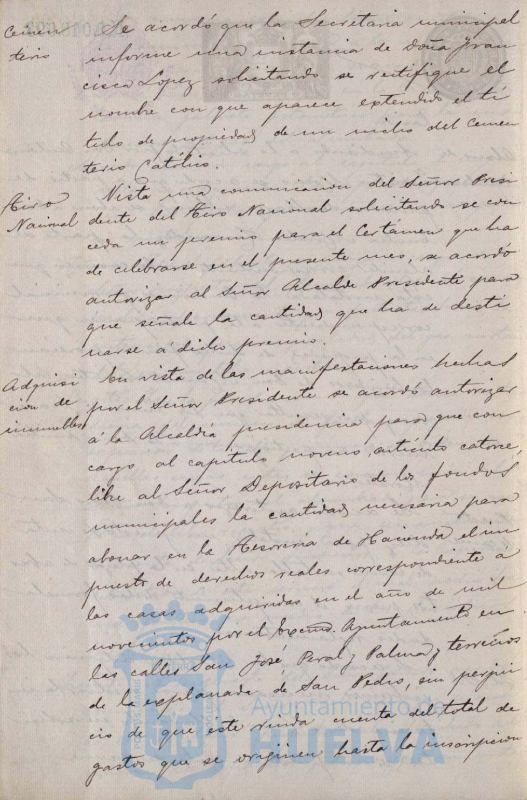 Cemen
terio
Se acordó que la Secretaria municipal
informe una instancia de Doña Fran
cisca Lopez solicitando se rectifique el
nombre con que aparece extendido el tí
tulo de propiedad de un nicho del Cemen
terio Católico.
Tiro
Nacional
Vista una comunicacion del Señor Presi
dente del Tiro Nacional solicitando se con
ceda un premio para el Certamen que ha
de celebrarse en el presente mes, se acordó
autorizar al Señor Alcalde Presidente para
que señale la cantidad que ha de desti
narse á dicho premio.
Adquisi
cion de
inmuebles
En vista de las manifestaciones hechas
por el Señor Presidente se acordó autorizar
á la Alcaldía presidencia para que con
cargo al capitulo noveno, articulo catorce,
libre al Señor Depositario de los fondos
municipales la cantidad necesaria para
abonar en la Tesoreria de Hacienda el im
puesto de derechos reales correspondiente á
las casas adquiridas en el año de mil
novecientos por el Excmo. Ayuntamiento en
las calles San José, Peral y Palma y terrenos
de la explanada de San Pedro, sin perjui
cio de que éste rinda cuenta del total de
gastos que se originen hasta la inscripcion
Ayuntamiento de
HUELVA